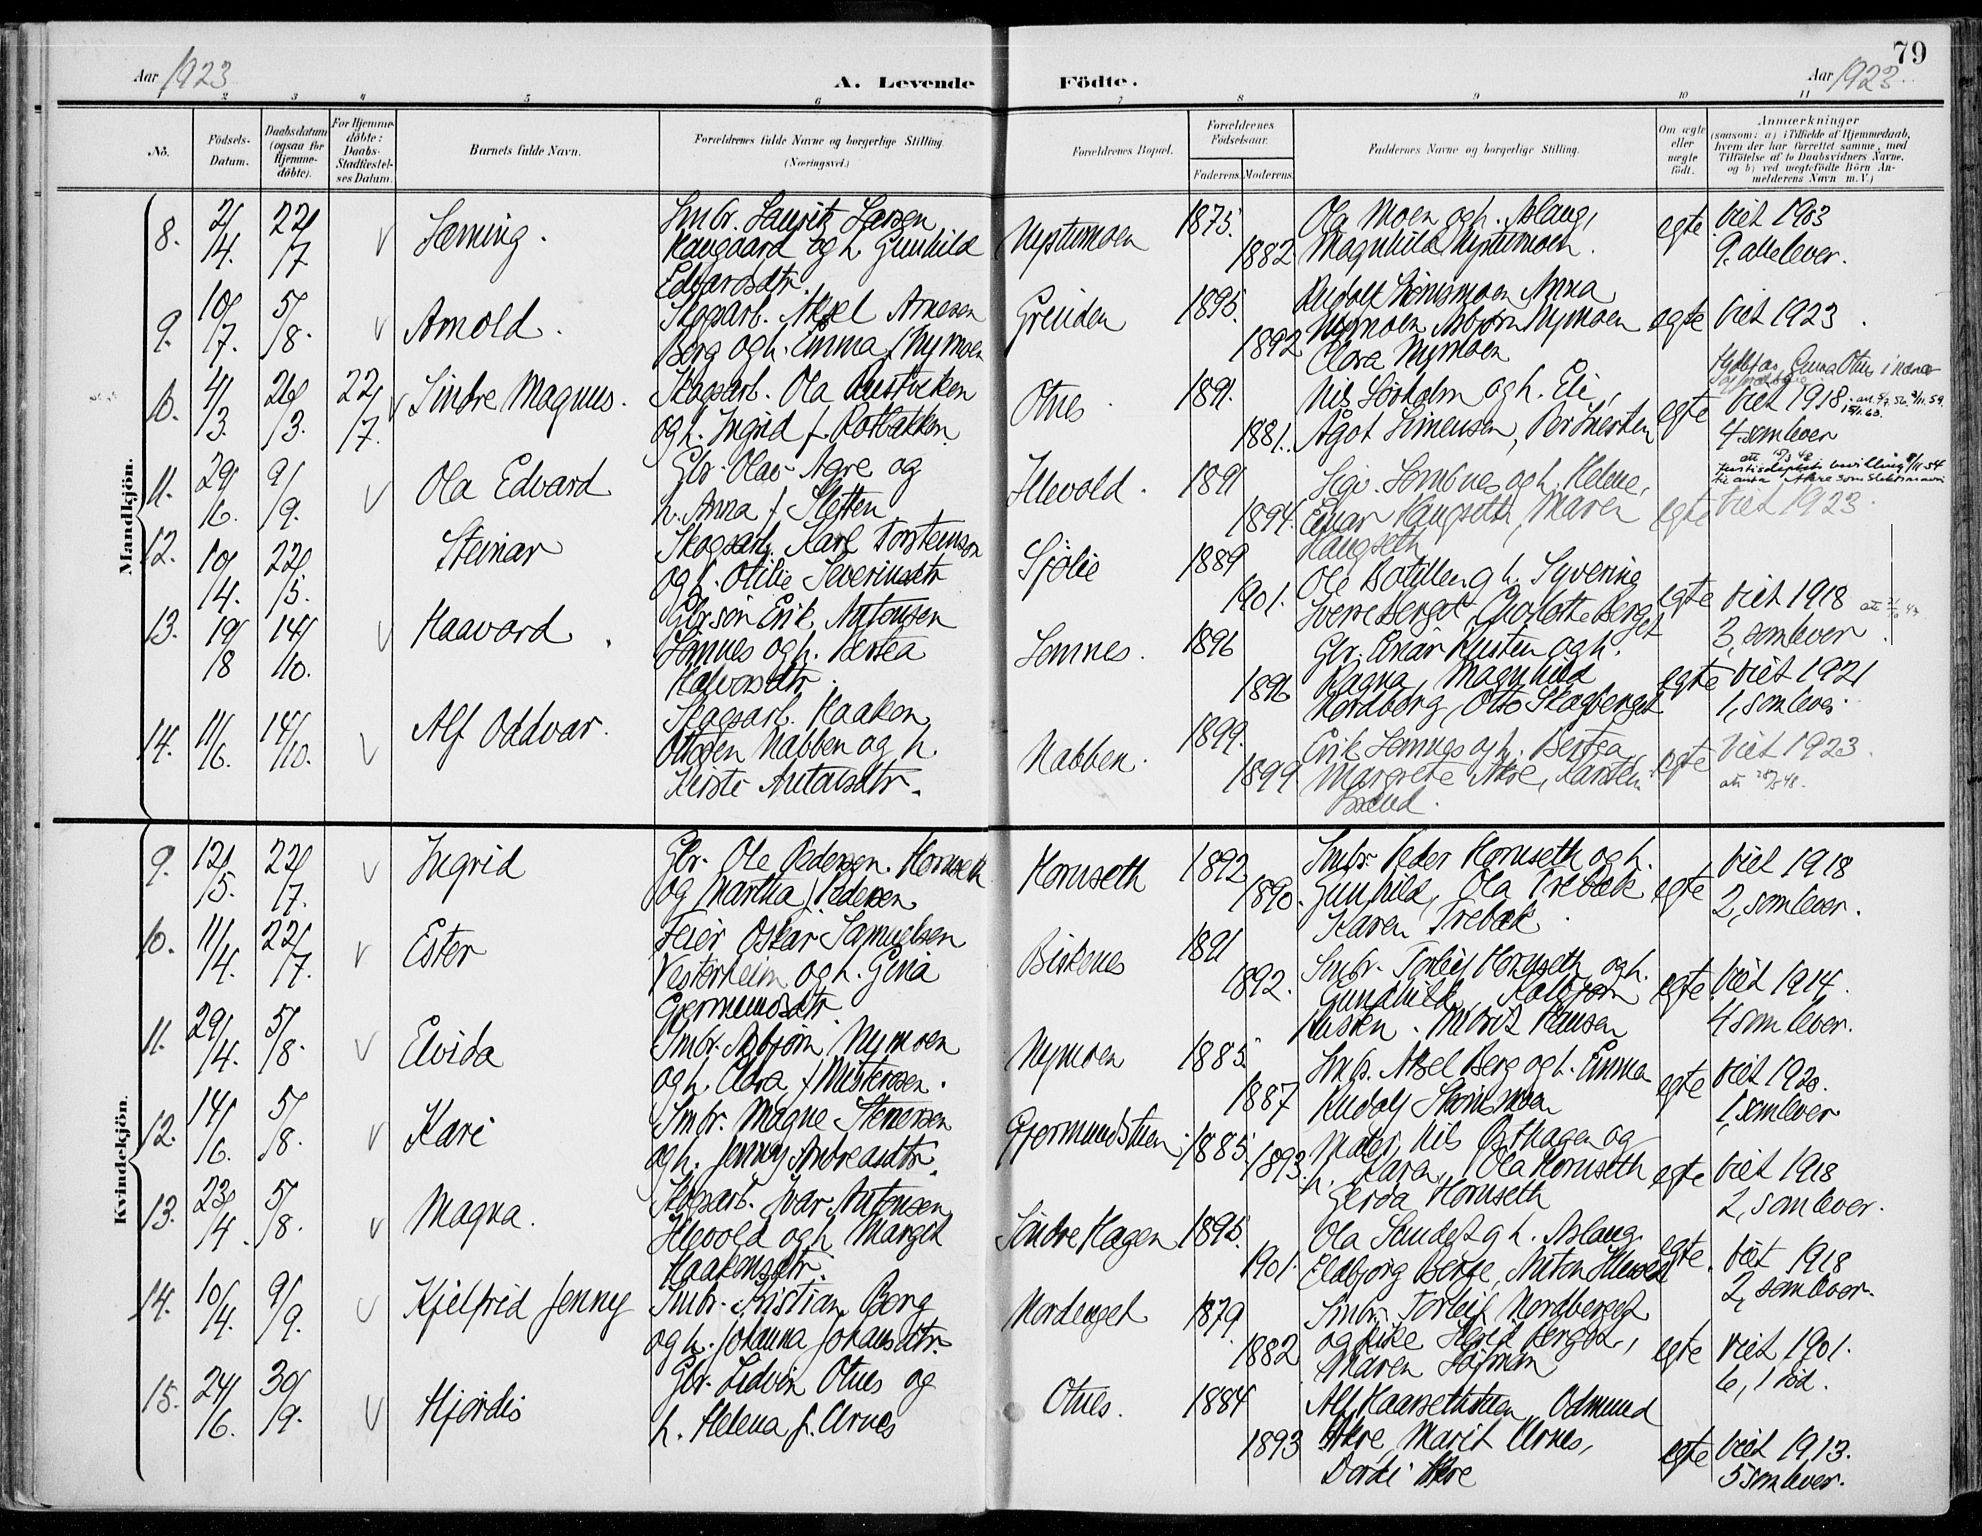 79
Aar 1923
A. Levende Födte.
Aar 1923
2 3 4 5 6 7 8 9 10 11
No.
Födsels-Datum.
Daabsdatum (ogsaa for Hjemme-döbte).
For Hjemme-döbte: Daabs-Stadfæstel-ses Datum.
Barnets fulde Navn.
Forældrenes fulde Navne og borgerlige Stilling (Næringsvei.)
Forældrenes Bopæl.
Forældrenes Födselsaar.
Faderens. Moderens.
Faddernes Navne og borgerlige Stilling.
Om ægte eller uægte födt.
Anmærkninger
(saasom: a) i Tilfælde af Hjemmedaab, hvem der har forrettet samme, med Tilföielse af to Daabsvidners Navne, og b) ved uegtefödte Börn An-melderens Navn m. V.)
Mandkjön.
8. 2/4. 22/7 Sæming. Smbr. Lauritz Larsen
Haugaard og h. Gunhild
Edvardsdtr.
Nystumoen 1875. 1882
Ola Moen og h. Aslaug,
Magnhild Nystumoen.
egte viet 1903
9. alle lever.
9. 10/7. 5/8. Arnold. Skogsarb. Aksel Arnesen
Berg og h. Emma f. Nymoen
Grinden 1895. 1892
Anna
Nymoen Asbjørn Nymoen
Clara Nymoen
egte viet 1923.
10. 4/3. 26/3. 22/7. Sindre Magnus. Skogsarb. Ola
og h. Ingrid f. Rotbakken
Otnes 1891. 1881.
Nils Sørholm og h. Eli,
Ågot Simensen, Per
egte viet 1918.
4 som lever
11. 29/6. 9/9. Ola Edvard Gbr. Olav Agre og
h. Anna f. Sletten
Illevold. 1891 1894.
Sigv. Sømnes og h. Helene,
Einar Haugseth, Maren
Haugseth
egte viet 1923.
12. 10/4. 22/5. Steinar Skogsarb. Karl Torstensson
og h. Otilie Severinsdtr
Sjølie 1889 1901.
Ole og h. Syverine
Sverre Berget, Charlotte Berget
egte viet 1918
3, som lever.
13. 19/8 14/10. Haavard. Gbr.søn Erik Antonsen
Sømnes og h. Bertea
Halvorsdtr.
Sømnes. 1896 1896
Gbr. Einar Husten og h.
Ragna, Magnhild
Nordberg, Otto Skagberget
egte viet 1921
1, som lever.
14. 11/6. 14/10. Alf Oddvar. Skogsarb. Haakon
Ottosen Nabben og h.
Kirsti Antonsdtr.
Nabben. 1899. 1899
Erik Sømnes og h. Bertea
Margrete Akre, Karsten
egte viet 1923.
att. 28/5 48.
Kvindekjön.
9. 12/5. 22/7. Ingrid Gbr. Ole Pedersen Hornseth
og Martha f. Pedersen
Hornseth 1892 1890.
Smbr. Peder Hornseth og h.
Gunhild, Ola Trebæk
Karen Trebæk.
egte viet 1918
2, som lever.
10. 11/4. 22/7. Ester Feier Oskar Samuelsen
Vesterheim og h. Gina
Gjermundsdtr.
Biskenes 1891 1892.
Smbr. Torleif Hornseth og h.
Gunhild, Kolbjørn
Husten. Moritz Hansen
egte. viet 1914.
4 som lever.
11. 29/4. 5/8. Elvida Smbr. Asbjørn Nymoen
og h. Clara f. Mistersen.
Nymoen 1885. 1887
Smbr. Aksel Berg og h. Emma
egte viet 1920.
1, som lever
12. 14/6. 5/8. Kari Smbr. Magne Stemersen
og h. Jenny Andreasdtr.
Gjermundstuen. 1885. 1893.
Maler Nils Østhagen og
h. Kara, Ola Hornseth
Gerda Hornseth
egte viet 1918
2, som lever.
13. 23/4. 5/8. Magna. Skogsarb. Ivar Antonsen
Illevold og h. Margit
Haakonsdtr.
Søndre Hagen 1895. 1901.
Ola Sundet og h. Aslaug.
Eldbjørg Berge, Anton Illevold
egte. viet 1918
2, som lever.
14. 10/4. 9/9. Kjelfrid Jenny Smbr. Kristian Berg
og h. Johanna Johansdtr.
Nordenget 1879 1882
Smbr. Torleif Nordberget
Berget,
Maren
egte viet 1901.
6, 1 død.
15. 24/6. 30/9. Hjørdis Gbr. Ledvin Otnes og
h. Helena f. Urnes
Otnes. 1884 1893
Alf Kaarsethstuen Odmund
Akre, Marit Urnes,
Dordi Akre
egte viet 1913.
5 som lever.